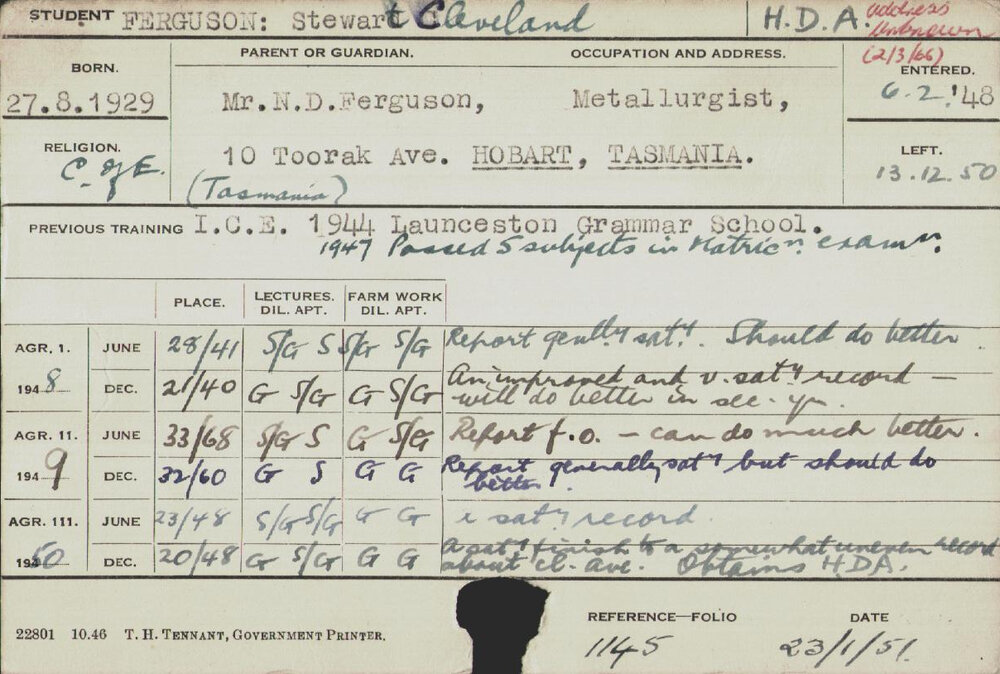 STUDENT FERGUSON: Stewart Cleveland H.D.A. address unknown
(2/3/66)
BORN. PARENT OR GUARDIAN. OCCUPATION AND ADDRESS. ENTERED.
27.8.1929 Mr.N.D.Ferguson, Metallurgist, 6.2.'48
RELIGION. C. of E. 10 Toorak Ave. HOBART, TASMANIA. LEFT.
(Tasmania) 13.12.50
PREVIOUS TRAINING I.C.E. 1944 Launceston Grammar School.
1947 Passed 5 subjects in Matricn. examn.
PLACE. LECTURES. DIL. APT. FARM WORK DIL. APT.
AGR. 1. JUNE 28/41 S/G S S/G S/G Report genlly saty. Should do better
1948 DEC. 21/40 G S/G G S/G An improved and v. saty record –
will do better in sec. yr.
AGR. 11. JUNE 33/68 S/G S G S/G Report f.o. – can do much better.
1949 DEC. 32/60 G S G G Report generally saty but should do
better.
AGR. 111. JUNE 23/48 S/G S/G G G saty record
1950 DEC. 20/48 G S/G G G A saty finish to a somewhat uneven record
about cl. ave. Obtains H.D.A.
REFERENCE—FOLIO DATE
22801 10.46 T. H. TENNANT, GOVERNMENT PRINTER. 1145 23/1/51.